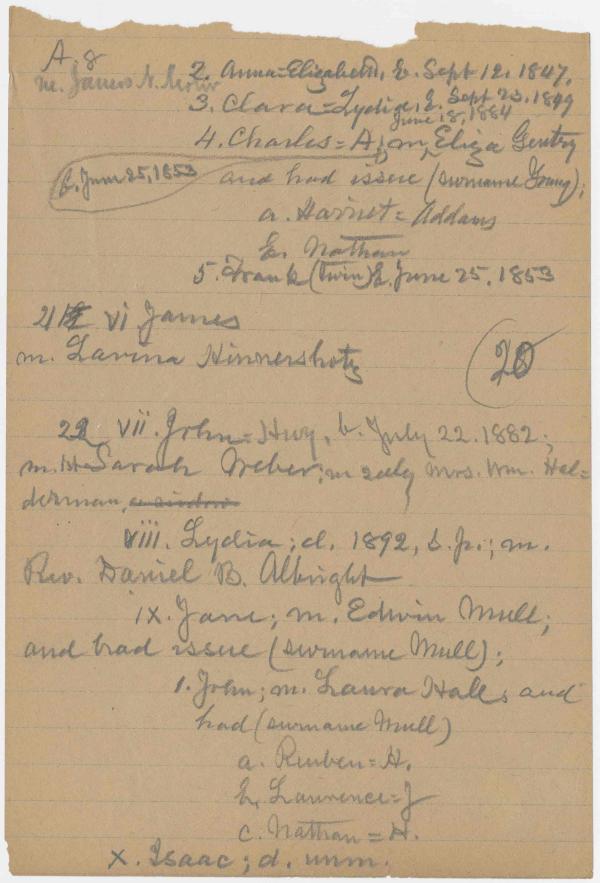 A. 8
m. James N.
2. Anna=Elizabeth, b. Sept 12, 1847.
3. Clara=Lydia, b. Sept 23, 1849
June 18, 1884
4. Charles=A; m. Eliza Gentry
b. June 25, 1853
and had issue (surname Young);
a. Harriet=Addams
b. Nathan
5. Frank (twin) b. June 25, 1853
21 vi James
m. Lavina Hinnershotz
20
22 vii. John=Huy, b. July 22. 1882;
m. 1st Sarah Weber; m 2dly Mrs. Wm. Hal=
derman, a widow
viii. Lydia; d. 1892, s. p.; m.
Rev. Daniel B. Albright
ix. Jane; m. Edwin Mull;
and had issue (surname Mull);
1. John; m. Laura Hall, and
had (surname Mull)
a. Reuben=H.
b. Lawrence=J
c. Nathan=H.
x. Isaac; d. unm.